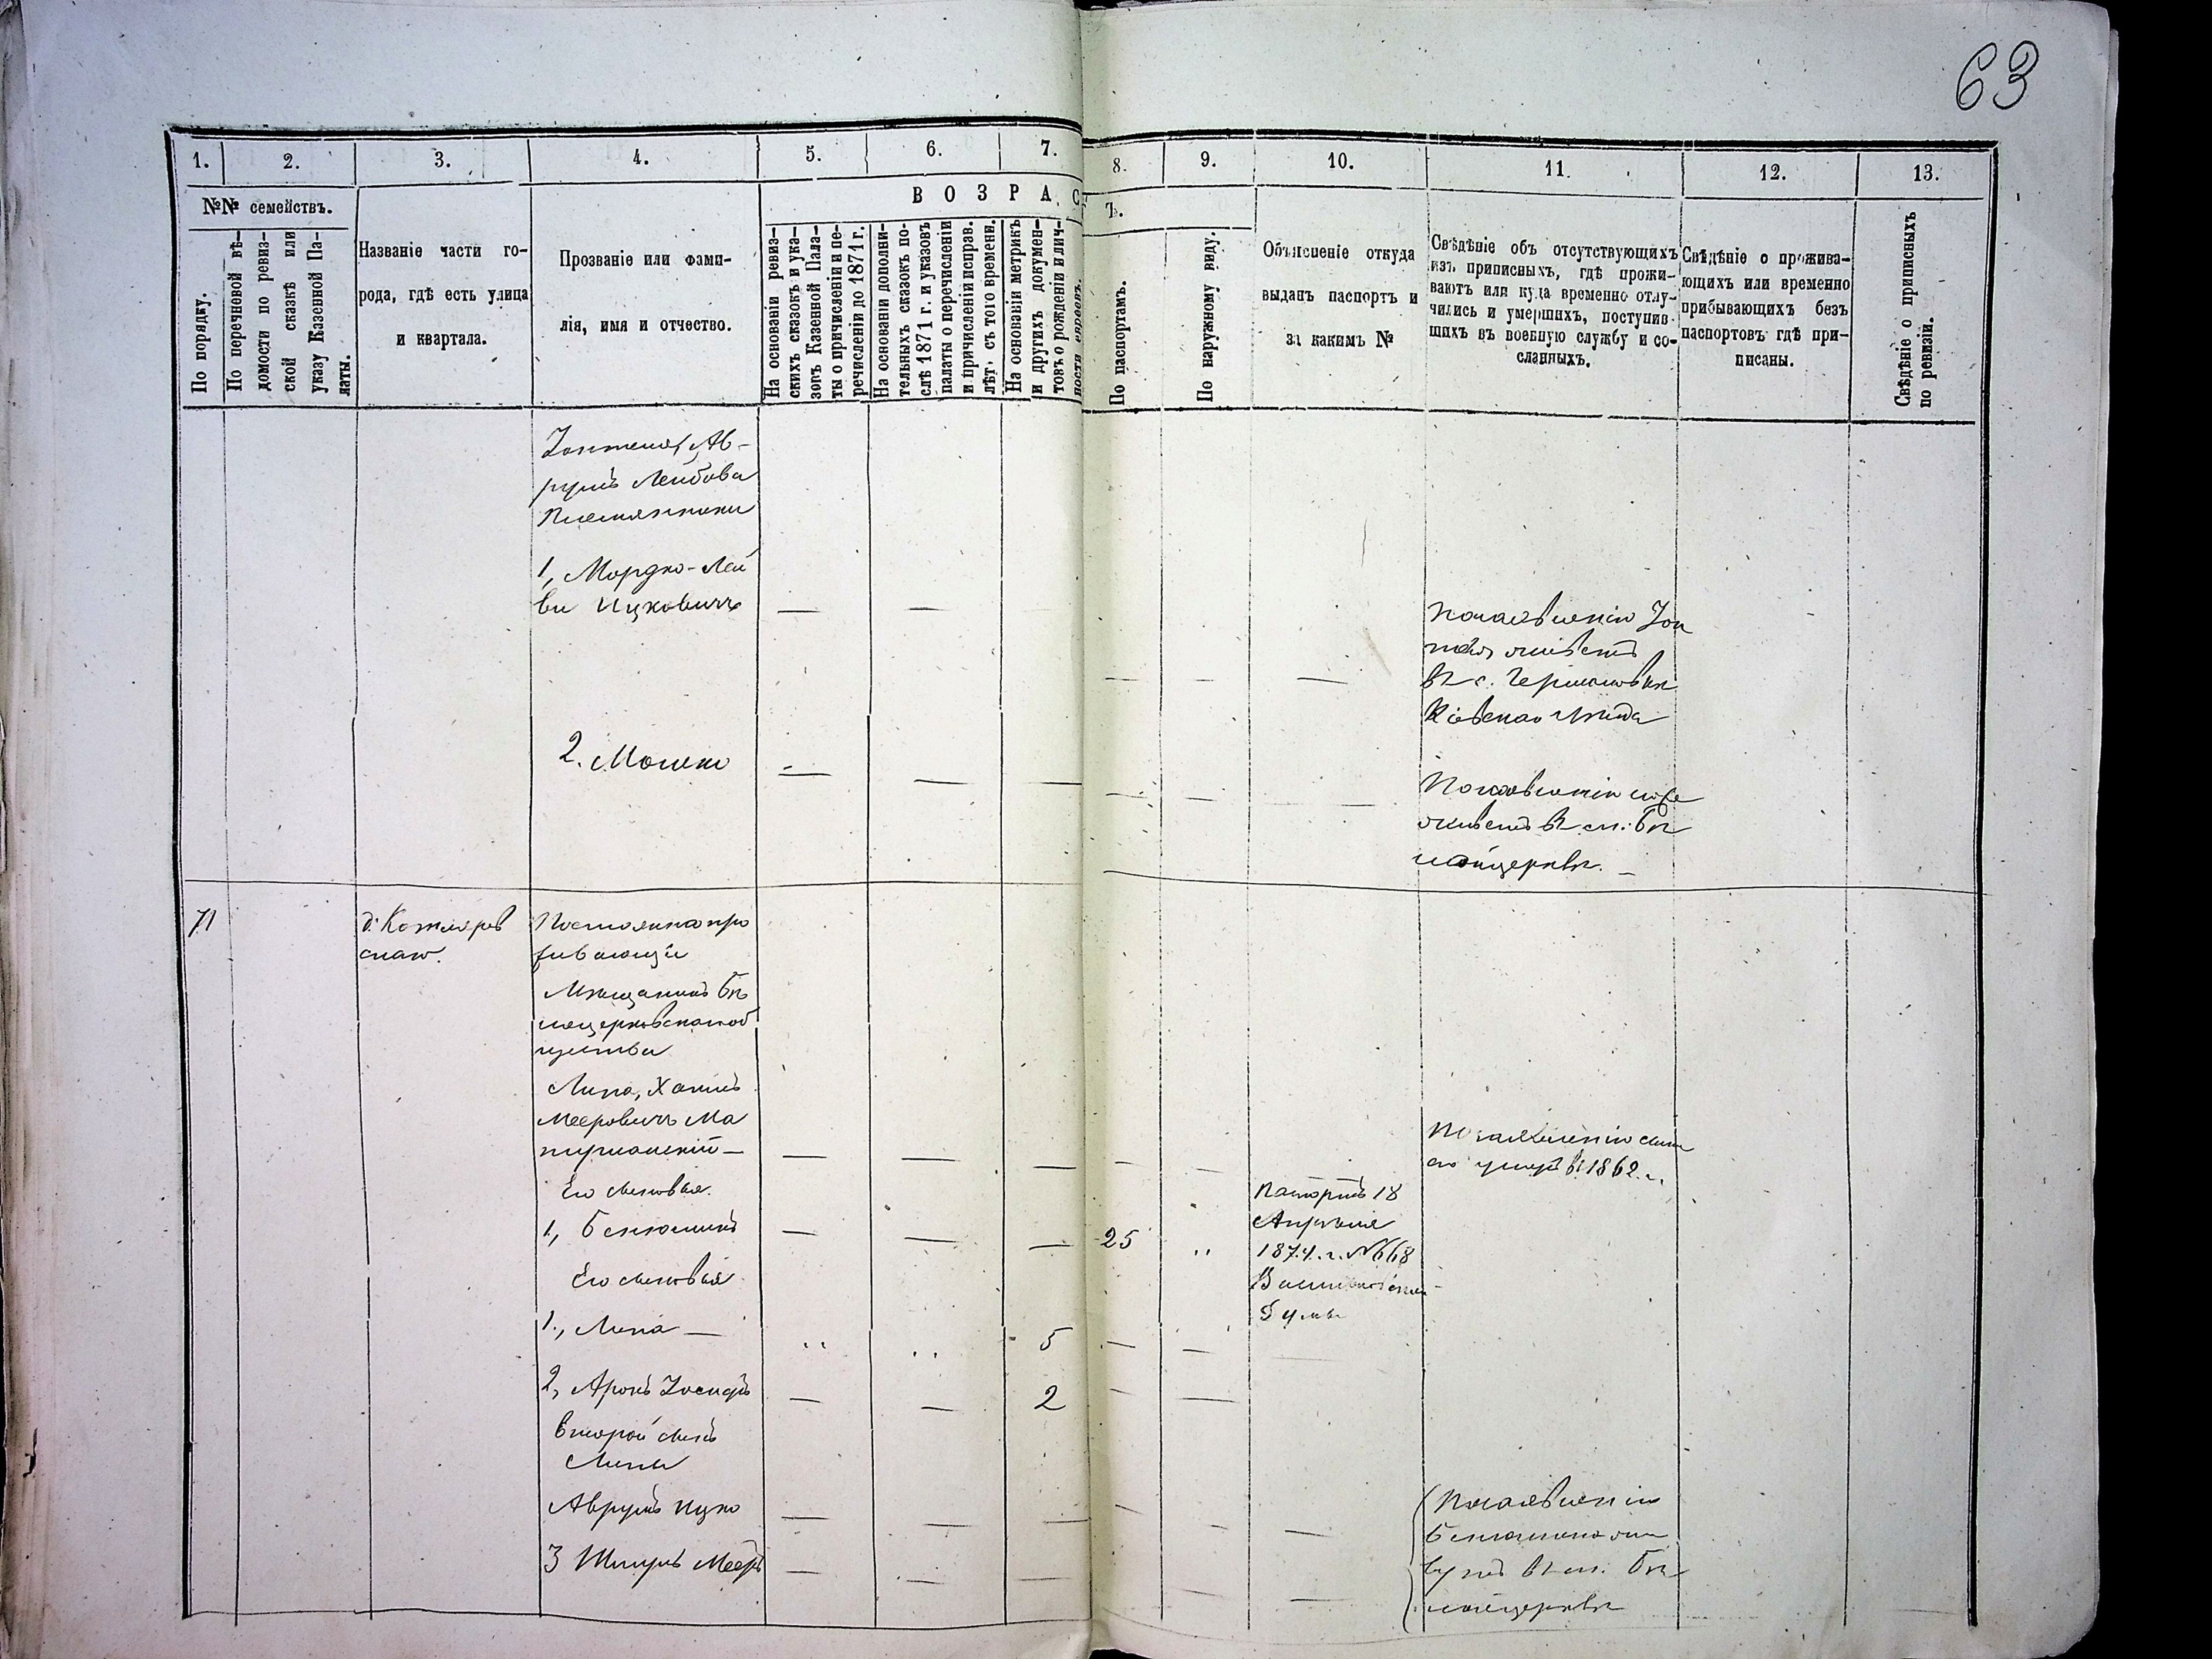 63
1. 2. 3. 4. 5. 6. 7. 8. 9. 10. 11. 12. 13.
№№ семействъ.
В О З Р А С Т Ъ.
По порядку.
По перечневой вѣ-
домости по ревиз-
ской сказкѣ или
указу Казенной Па-
латы.
Названіе части го-
рода, гдѣ есть улица
и квартала.
Прозваніе или фами-
лія, имя и отчество.
На основаніи ревиз-
скихъ сказокъ и ука-
зовъ Казенной Пала-
ты о причисленіи и пе-
речисленіи до 1871 г.
На основаніи дополни-
тельныхъ сказокъ по-
слѣ 1871 г. и указовъ
палаты о перечисленіи
и причисленіи исправ.
лѣт. съ того времени.
На основаніи метрикъ
и другихъ докумен-
товъ о рожденіи и лич-
ности евреевъ.
По паспортамъ.
По наружному виду.
Объясненіе откуда
выданъ паспортъ и
за какимъ №
Свѣдѣніе объ отсутствующихъ
изъ приписныхъ, гдѣ прожи-
ваютъ или куда временно отлу-
чились и умершихъ, поступив-
шихъ въ военную службу и со-
сланныхъ.
Свѣдѣніе о прожива-
ющихъ или временно
прибывающихъ безъ
паспортовъ гдѣ при-
писаны.
Свѣдѣніе о приписныхъ
по ревизіи.
Ав-
румъ Лейбова
Племянники
1, Мордко-Лей
ба Ицковичъ — —
По заявленію
живетъ
въ с. Германовкѣ
Кіевскаго уѣзда
2. Мошко — — —
По заявленію
живетъ въ м. Бѣ
лойцеркви. —
71
д. Котляров
ская.
Постоянно про
живающій
Мѣщанинъ Бѣ
лоцерковскаго об
щества
Липа, Хаимъ
Мееровичъ Ма
— — — — — —
По заявленію сына
его умеръ въ 1862. г.
Его сыновья.
1, Бенюминъ — — — 25 "
Паспортъ 18
Апрѣля
1874. г. № 668
Васильковской
Думы
Его сыновья
1., Липа — " " 5 — —
2, Аронъ Іосифъ — — 2 — —
второй сынъ
Липы
Аврумъ Ицко — — — — — —
3 Шмуль Мееръ — — — — —
По заявленію
Бенюмина жи
вутъ въ м. Бѣ
лойцеркви